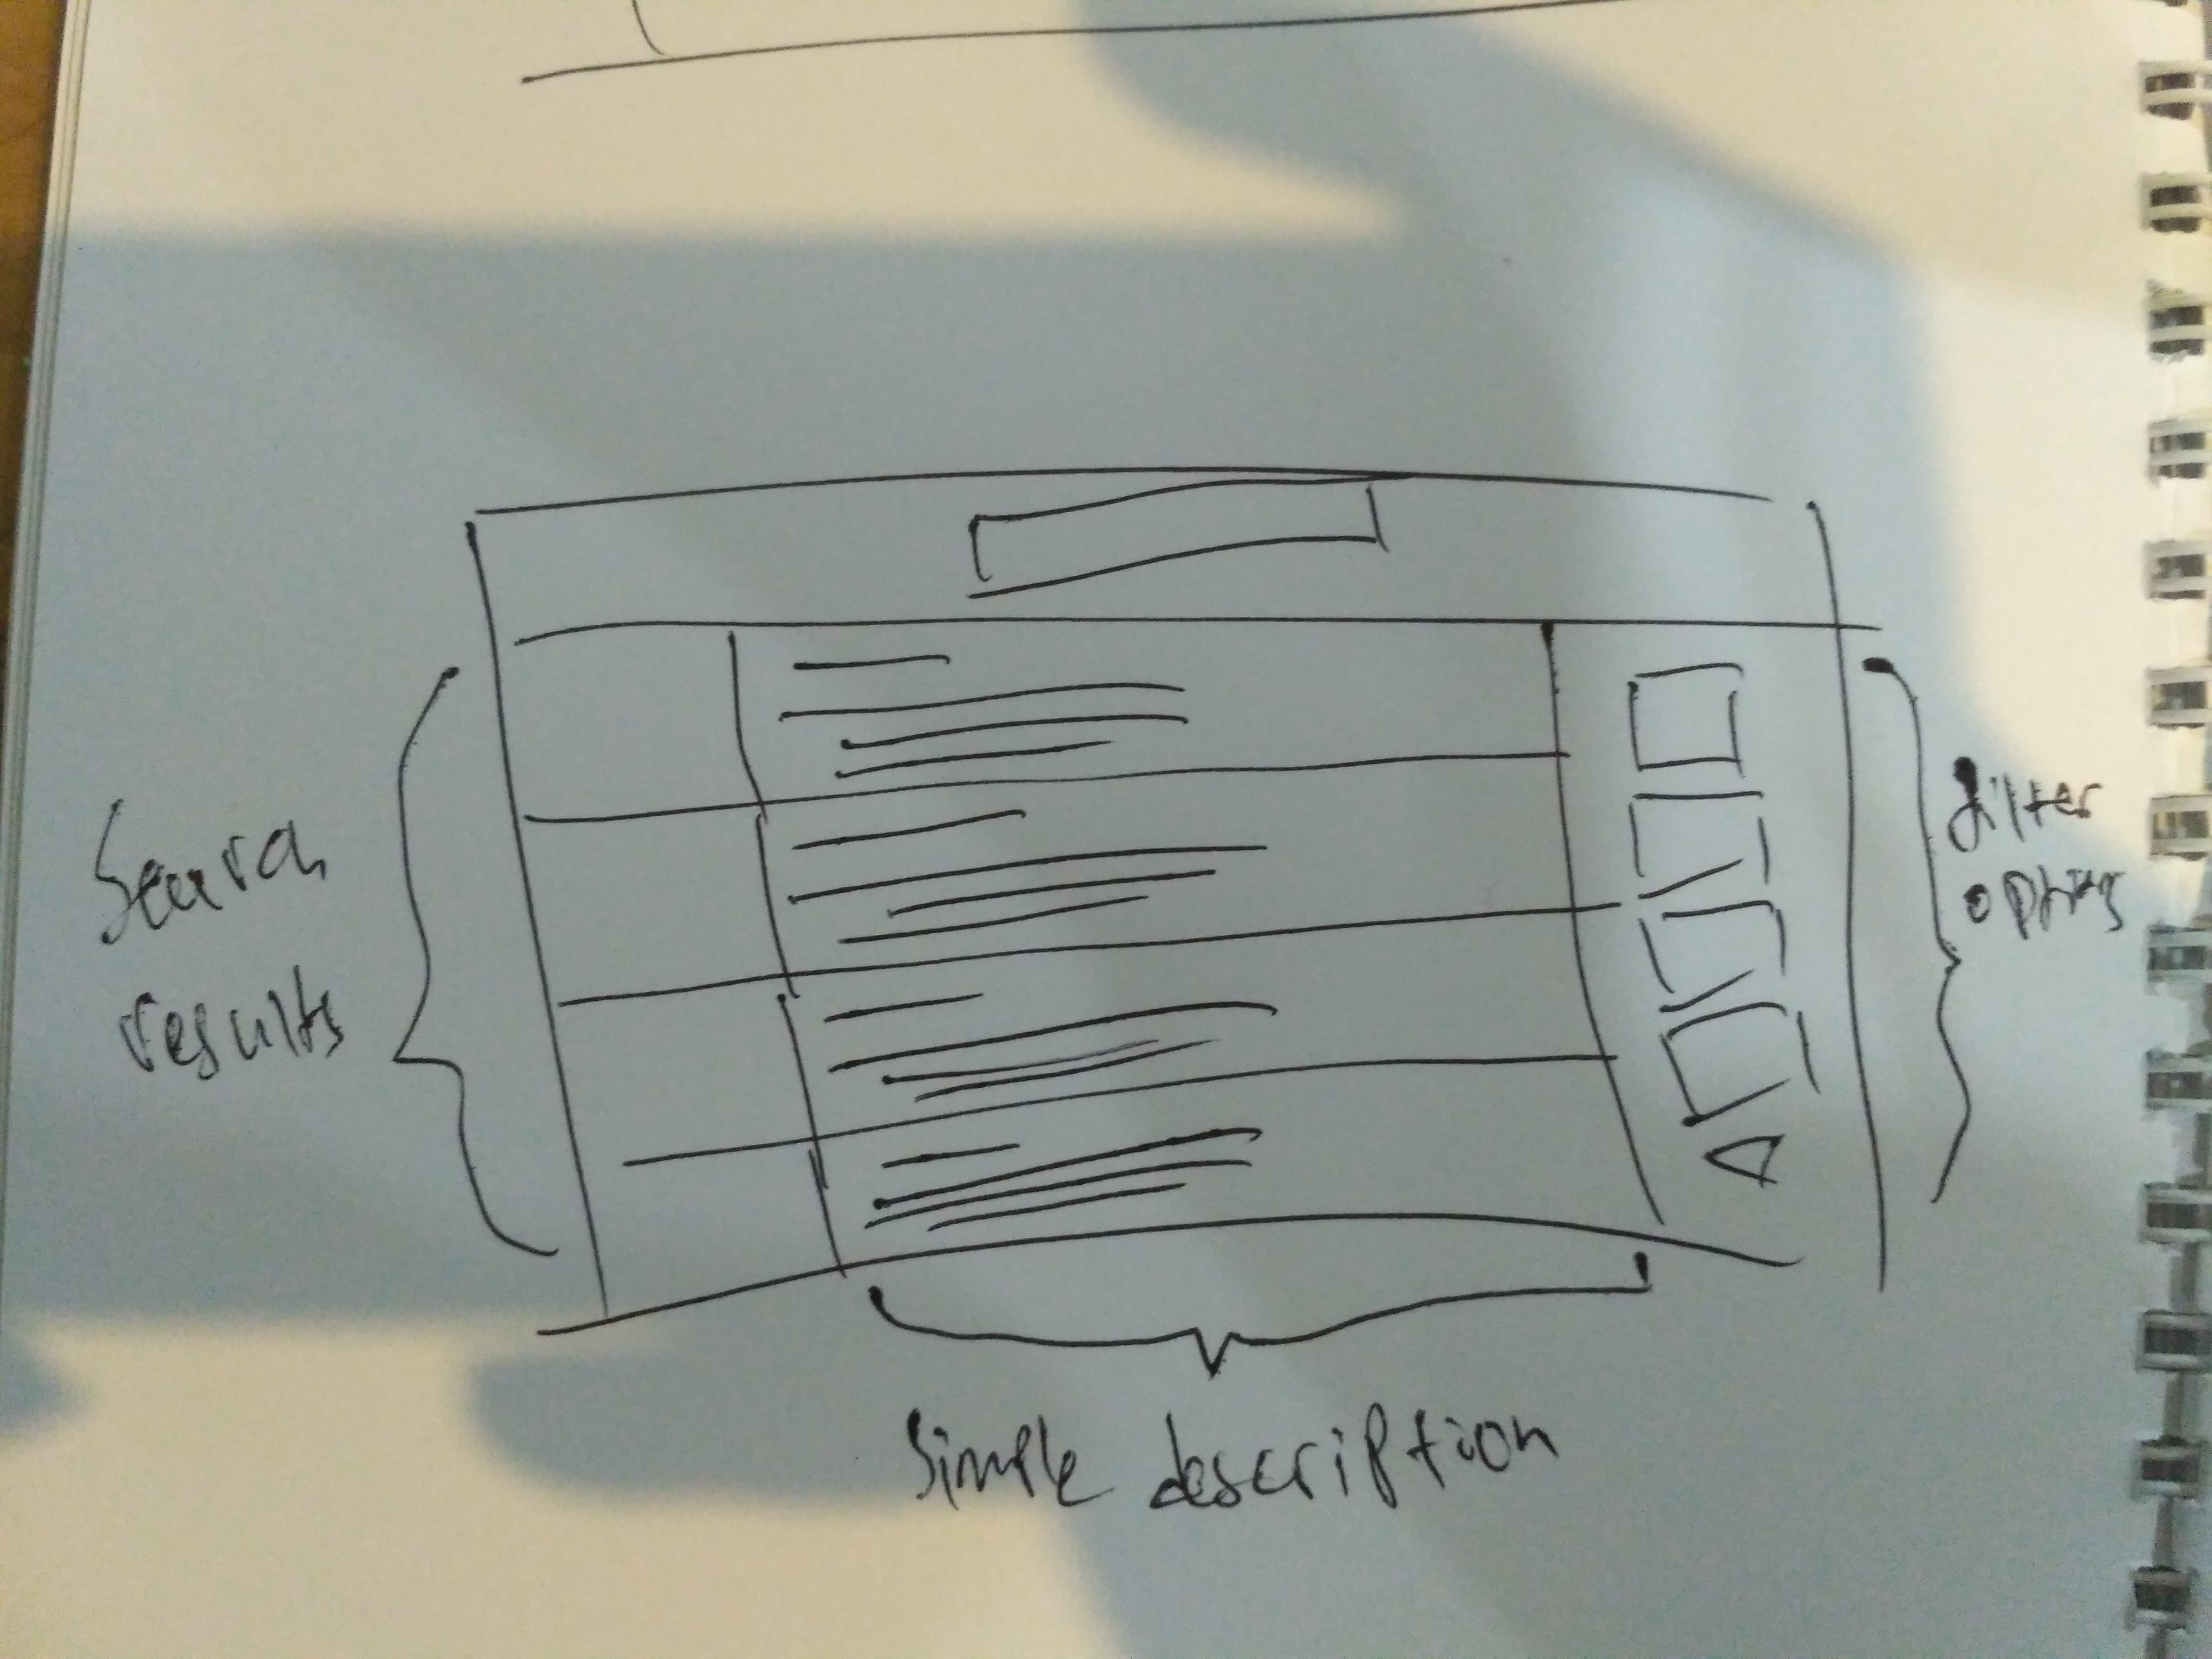 Search
results
filter
options
Simple description